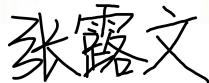 张露文